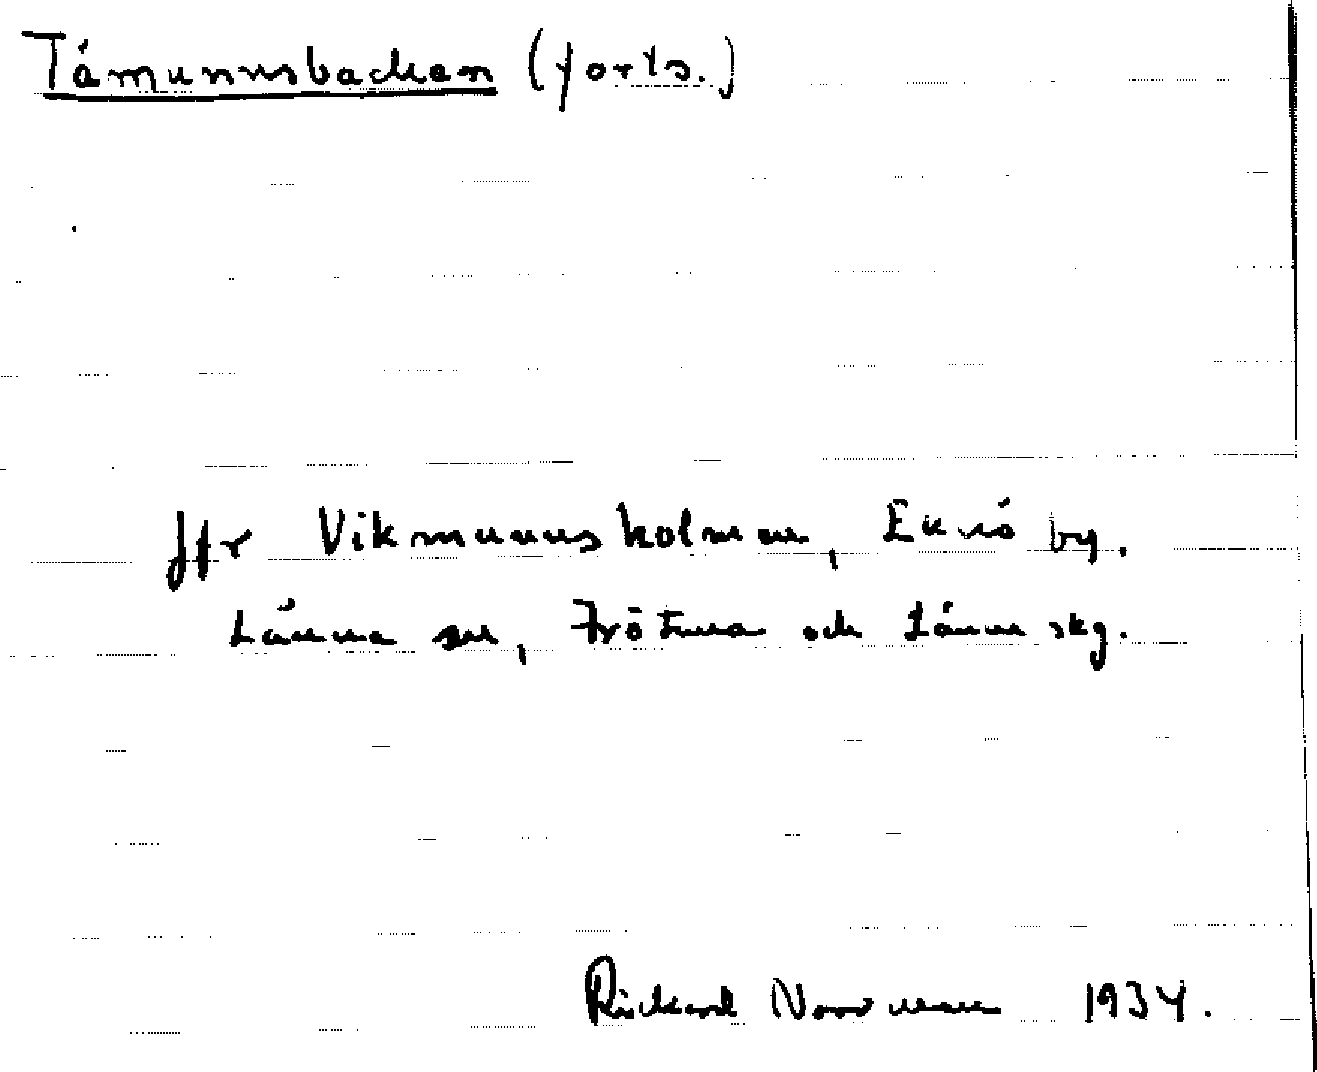 Tåmunnsbacken (forts.)
Jfr Vikmannsholmen, Eknö by.
Länna sn, Frötuna och Länna skg.
Rickard Norrman 1934.